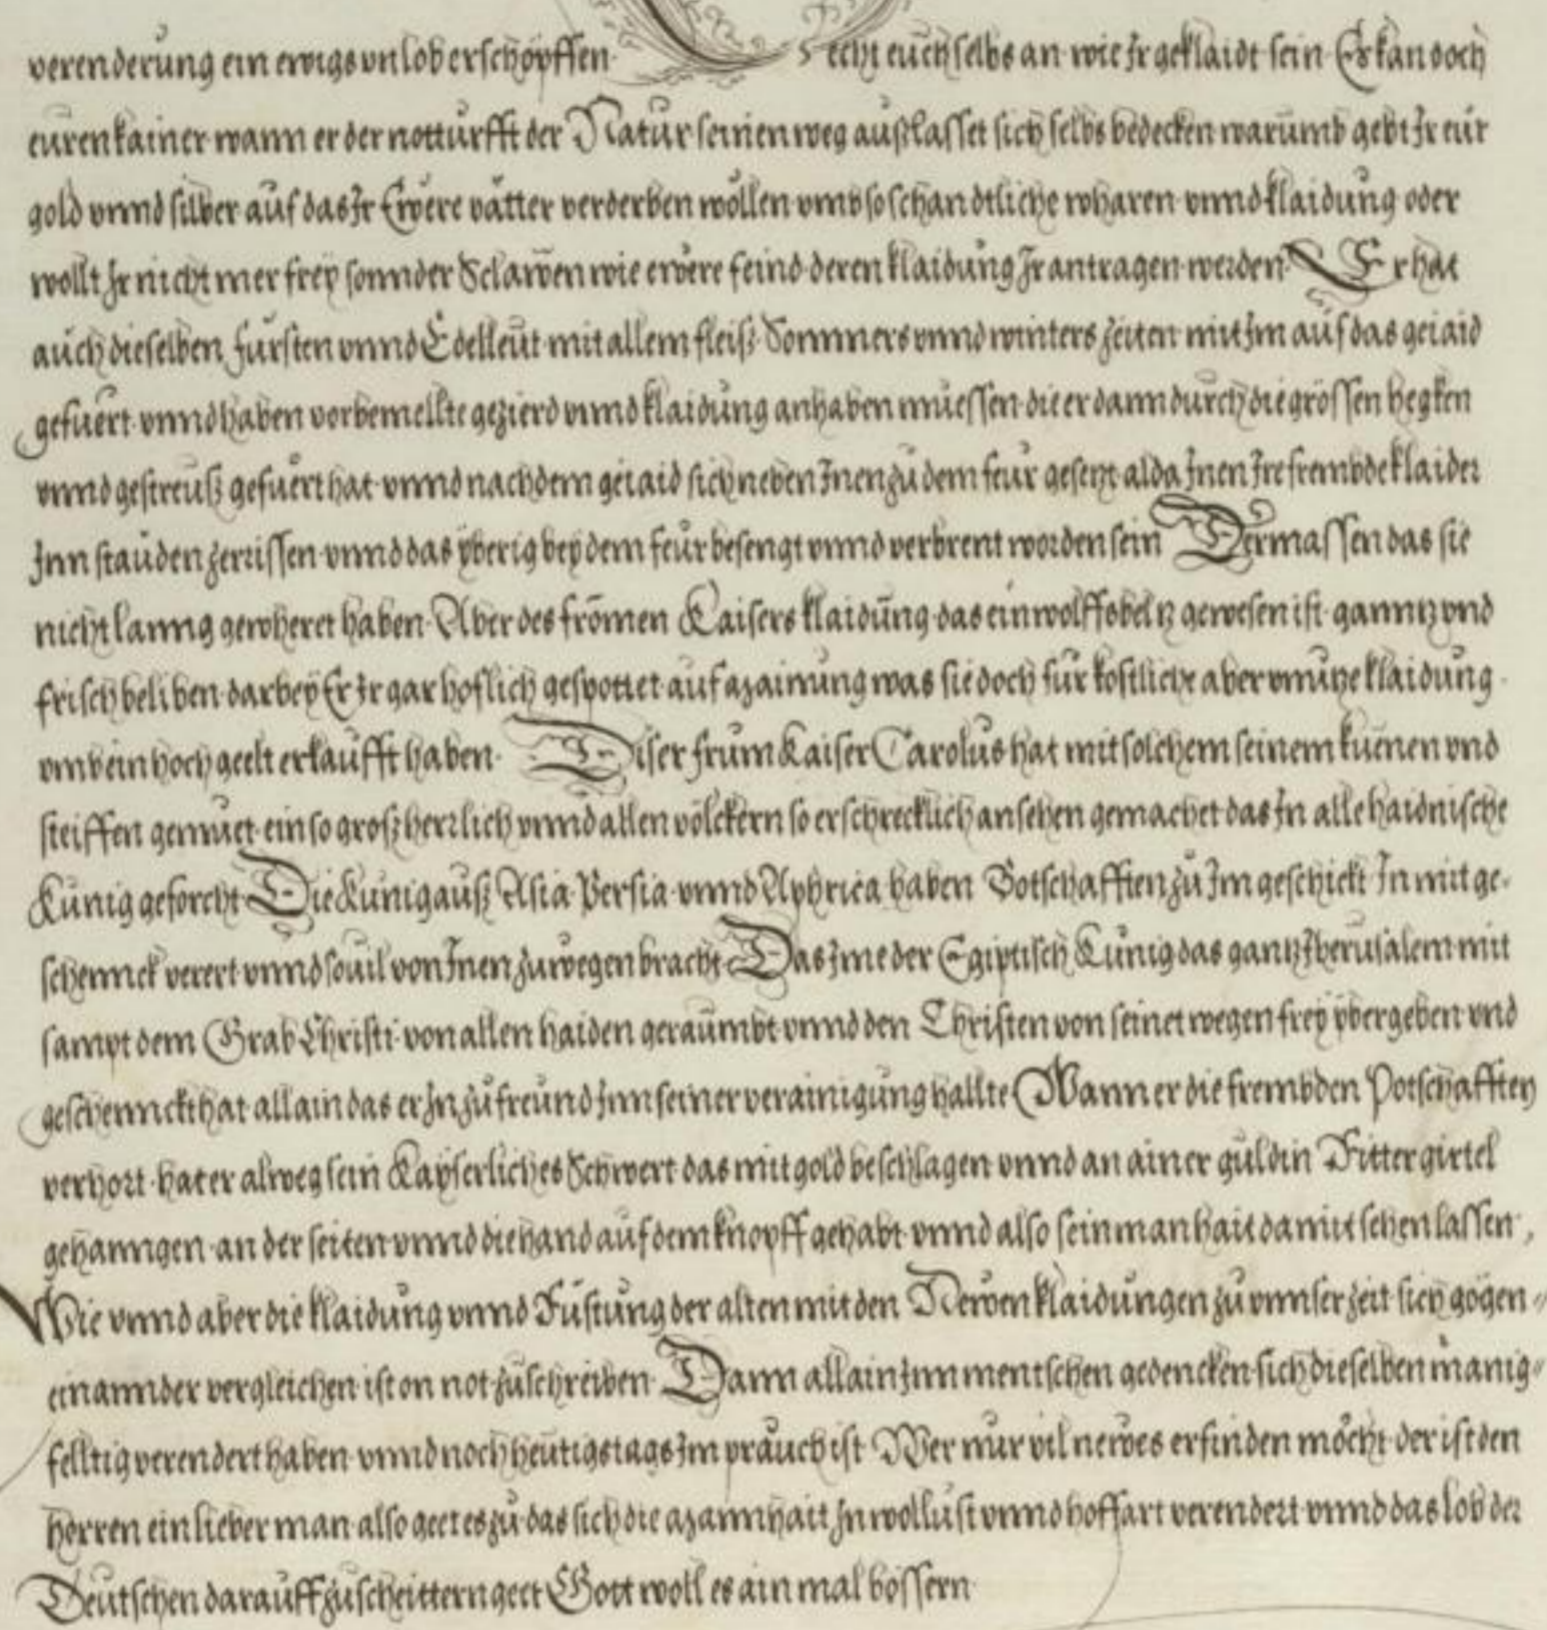 verenderung ein ewigs vnlob erschöpffen Secht euch selbs an wie Jr geklaidt sein Es kan doch
euren kainer wann er der notturfft der Natur seinen weg außlasset sich selbs bedecken warumb gebt Jr eur
gold vnnd silber auf das Jr Ewere vätter verderben wöllen vmb so schandtliche wharen vnnd klaidung oder
wollt Jr nicht mer frey sonnder Sclawen wie ewere feind deren klaidung Jr antragen werden Er hat
auch dieselben fursten vnnd Edelleut mit allem fleiß Sommers vnnd winters zeiten mit Jm auf das geiaid
gefuert vnnd haben vorbemellte gezierd vnnd klaidung anhaben muessen die er dann durch die grössen hegken
vnnd gestreuß gefuert hat vnnd nach dem geiaid sich neben Jnen zu dem feur gesetzt alda Jnen Jre frembde klaider
Jnn stauden zerrissen vnnd das yberig bey dem feur besengt vnnd verbrent worden sein Dermassen das sie
nicht lanng gewheret haben Aber des fromen Kaisers klaidung das ein wolffsbeltz gewesen ist ganntz vnd
frisch beliben darbey Er Jr gar hoflich gespottet auf azaimung was sie doch fur kostliche aber vnnutze klaidung
vmb ein hoch geelt erkaufft haben Diser frum Kaiser Carolus hat mit solchem seinem kuenen vnd
steiffen gemuet ein so groß herrlich vnnd allen völckern so erschrecklich ansehen gemachet das Jn alle haidnische
Kunig geforcht Die Kunig auß Asia Persia vnnd Aphrica haben Botschafften zu Jm geschickt Jn mit ge-
schennck verert vnnd souil von Jnen zuwegen bracht Das Jme der Egiptisch Kunig das gantz Jherusalem mit
sampt dem Grab Christi von allen haiden geraumbt vnnd den Christen von seinet wegen frey ybergeben vnd
geschennckt hat allain das er Jn zu freund Jnn seiner verainigung hallte Wann er die frembden Potschafften
verhort hat er alweg sein Kayserliches Schwert das mit gold beschlagen vnnd an ainer guldin Rittergirtel
gehanngen an der seiten vnnd die hand auf dem knopff gehabt vnnd also sein manhait damit sehen lassen,
Wie vnnd aber die klaidung vnnd Rustung der alten mit den Newen klaidungen zu vnnser zeit sich gögen=
einannder vergleichen ist on not zuschreiben Dann allain Jnn mentschen gedencken sich dieselben manig=
felltig verendert haben vnnd noch heutigs tags Jm prauch ist Wer nur vil newes erfinden möcht der ist den
herren ein lieber man also geet es zu das sich die azannhait Jn wollust vnnd hoffart verendert vnnd das lob der
Deutschen darauff zu scheittern geet Gott woll es ain mal bössern